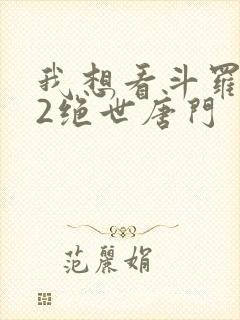 我想看斗羅
2絕世唐門
范麗娟